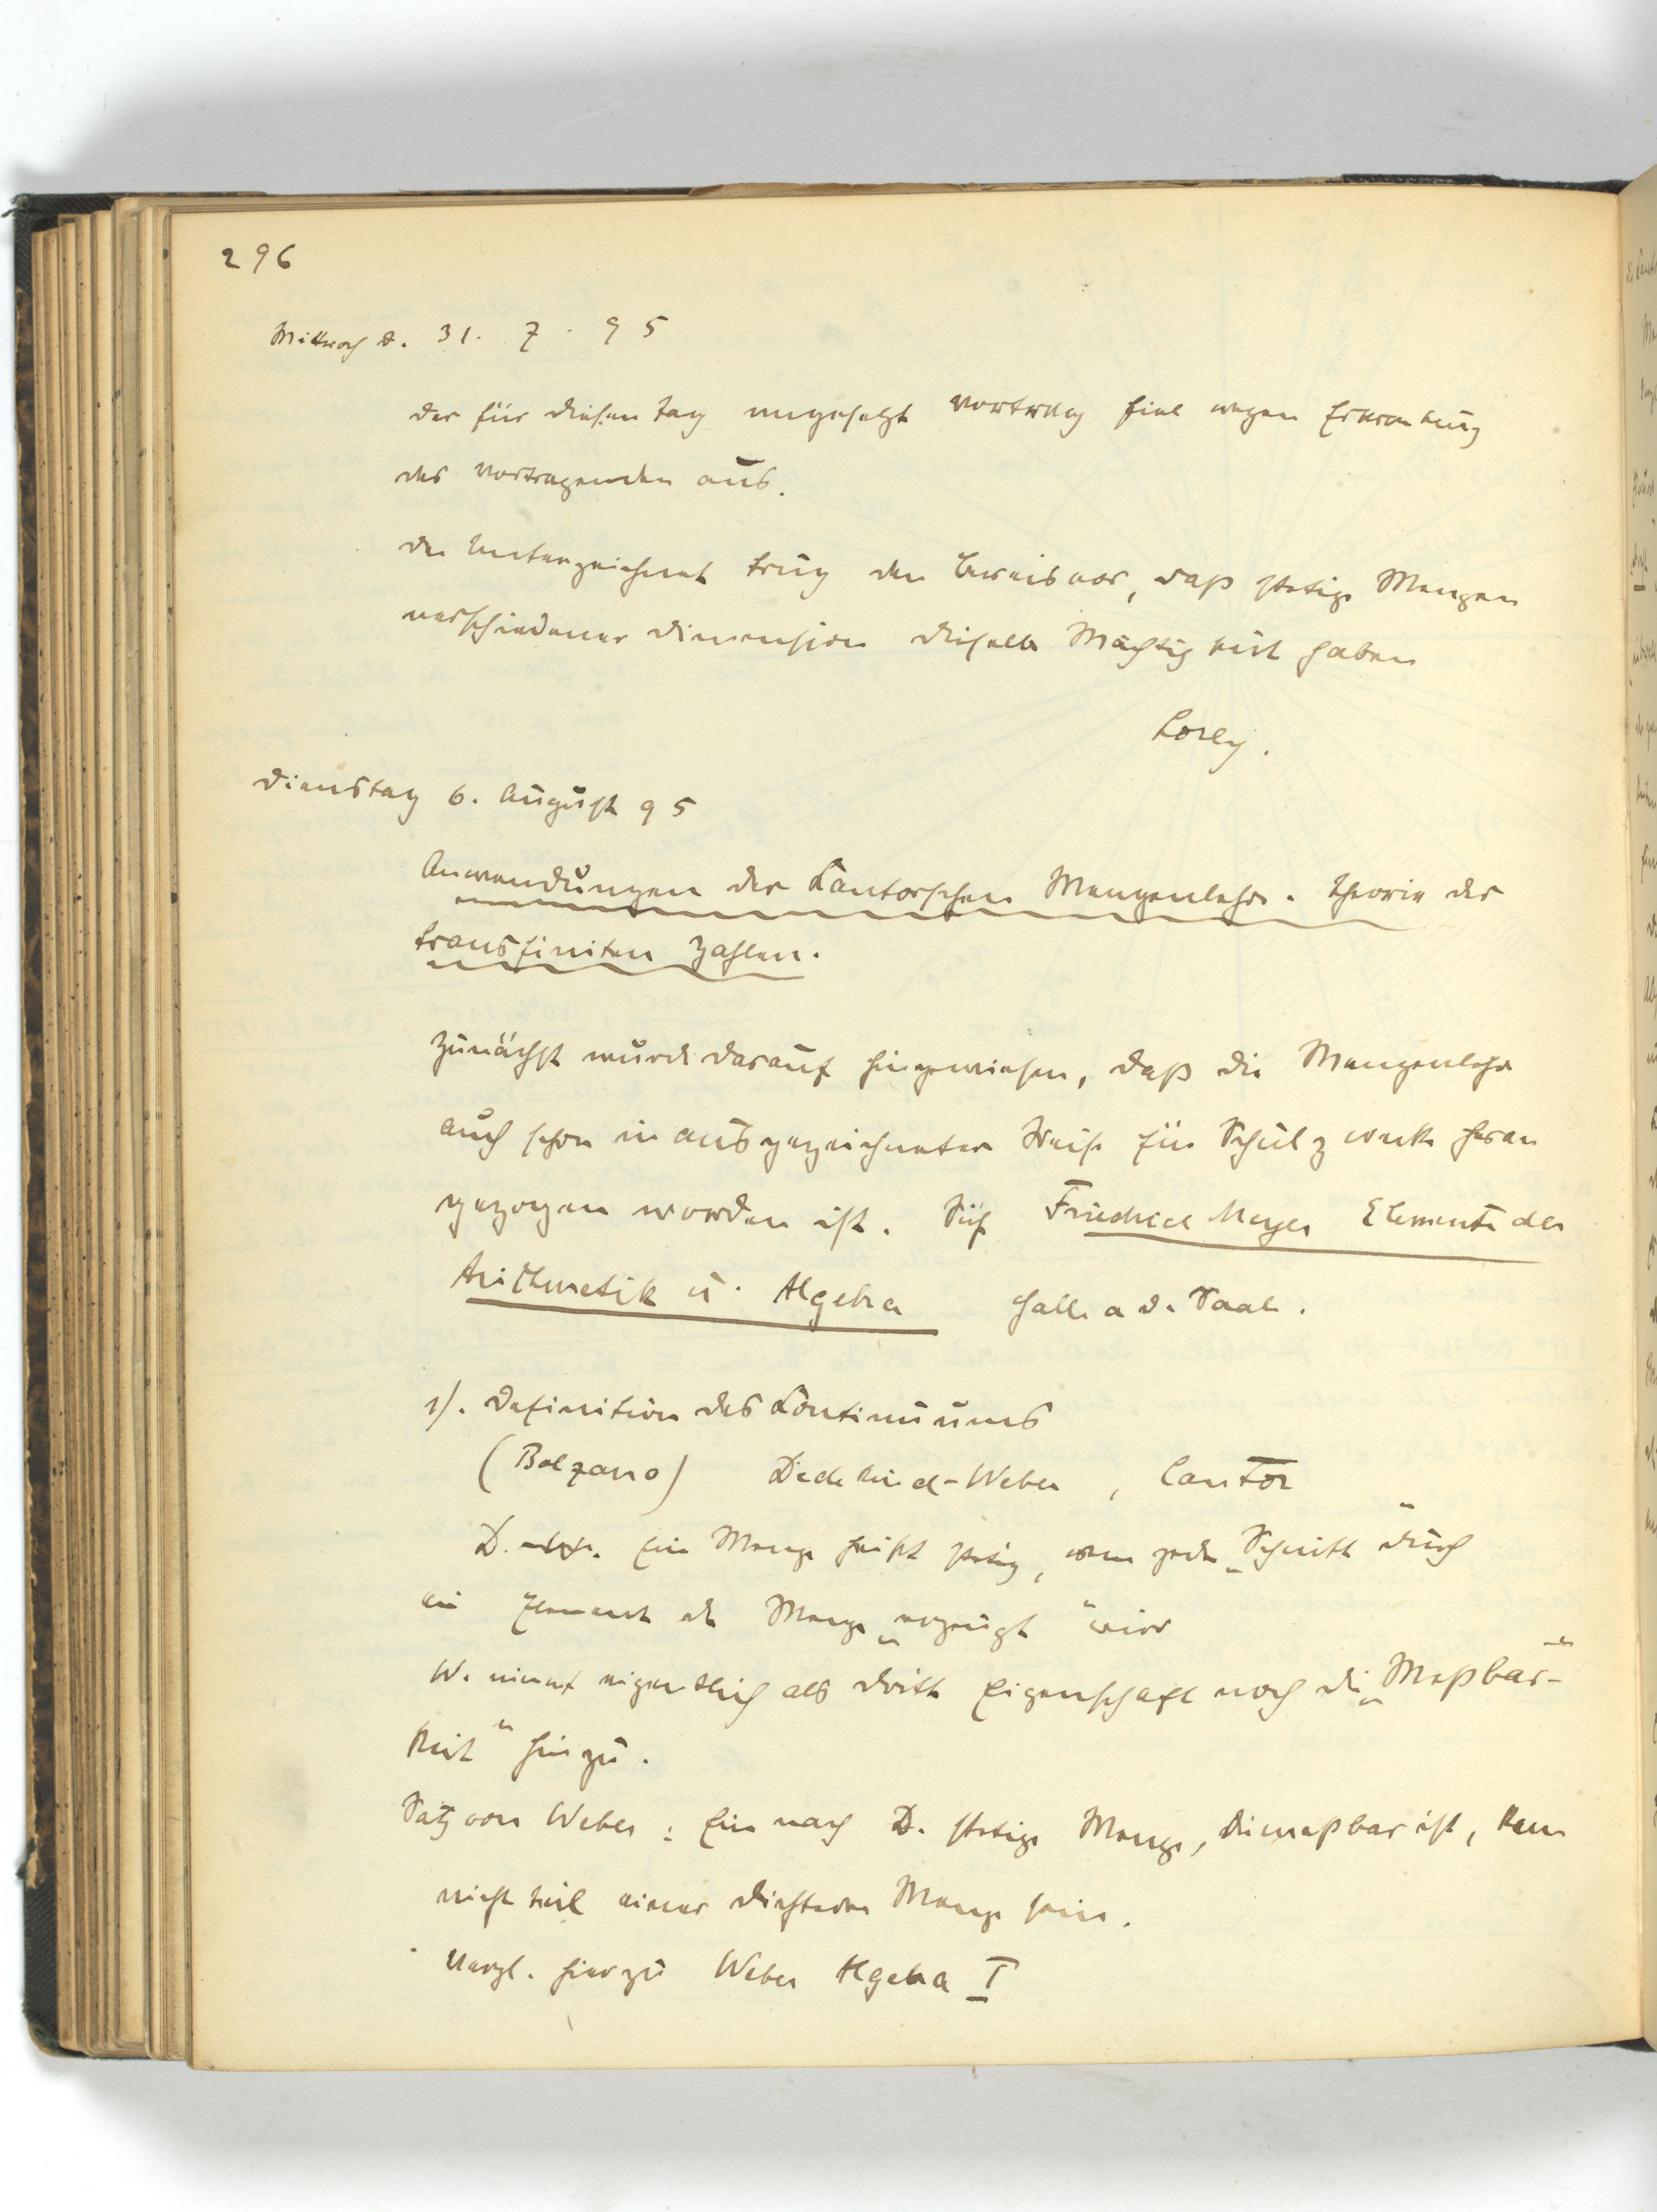 296
Mittwoch d. 31. 7. 95
der für diesen Tag angesetzt Vortrag fiel wegen Erkrankung
des Vortragenden aus.
der Unterzeichnet trug den Beweis vor, daß stetige Mengen
verschiedener Dimension dieselbe Mächtigkeit haben
Lorey.
Dienstag 6. August 95
Anwendungen der Cantorschen Mengenlehre. Theorie der
transfiniten Zahlen.
Zunächst wurde darauf hingewiesen, daß die Mengenlehre
auch schon in ausgezeichneter Weise für Schulzwecke heran
gezogen worden ist. Sieh Friedrich Meyer Elemente der
Arithmetik u. Algebra Halle a d. Saale.
1). Definition des Continuums
(Bolzano) Dedekind-Weber, Cantor
D. Eine Menge heißt stetig, wenn jeder „Schnitt" durch
ein Element der Menge „erzeugt" wird
W. nimmt eigentlich als dritte Eigenschaft noch die „Meßbar-
keit" hinzu.
Satz von Weber: Eine nach D. stetige Menge, die meßbar ist, kann
nicht Teil einer dichteren Menge sein.
Vergl. hierzu Weber Algebra I